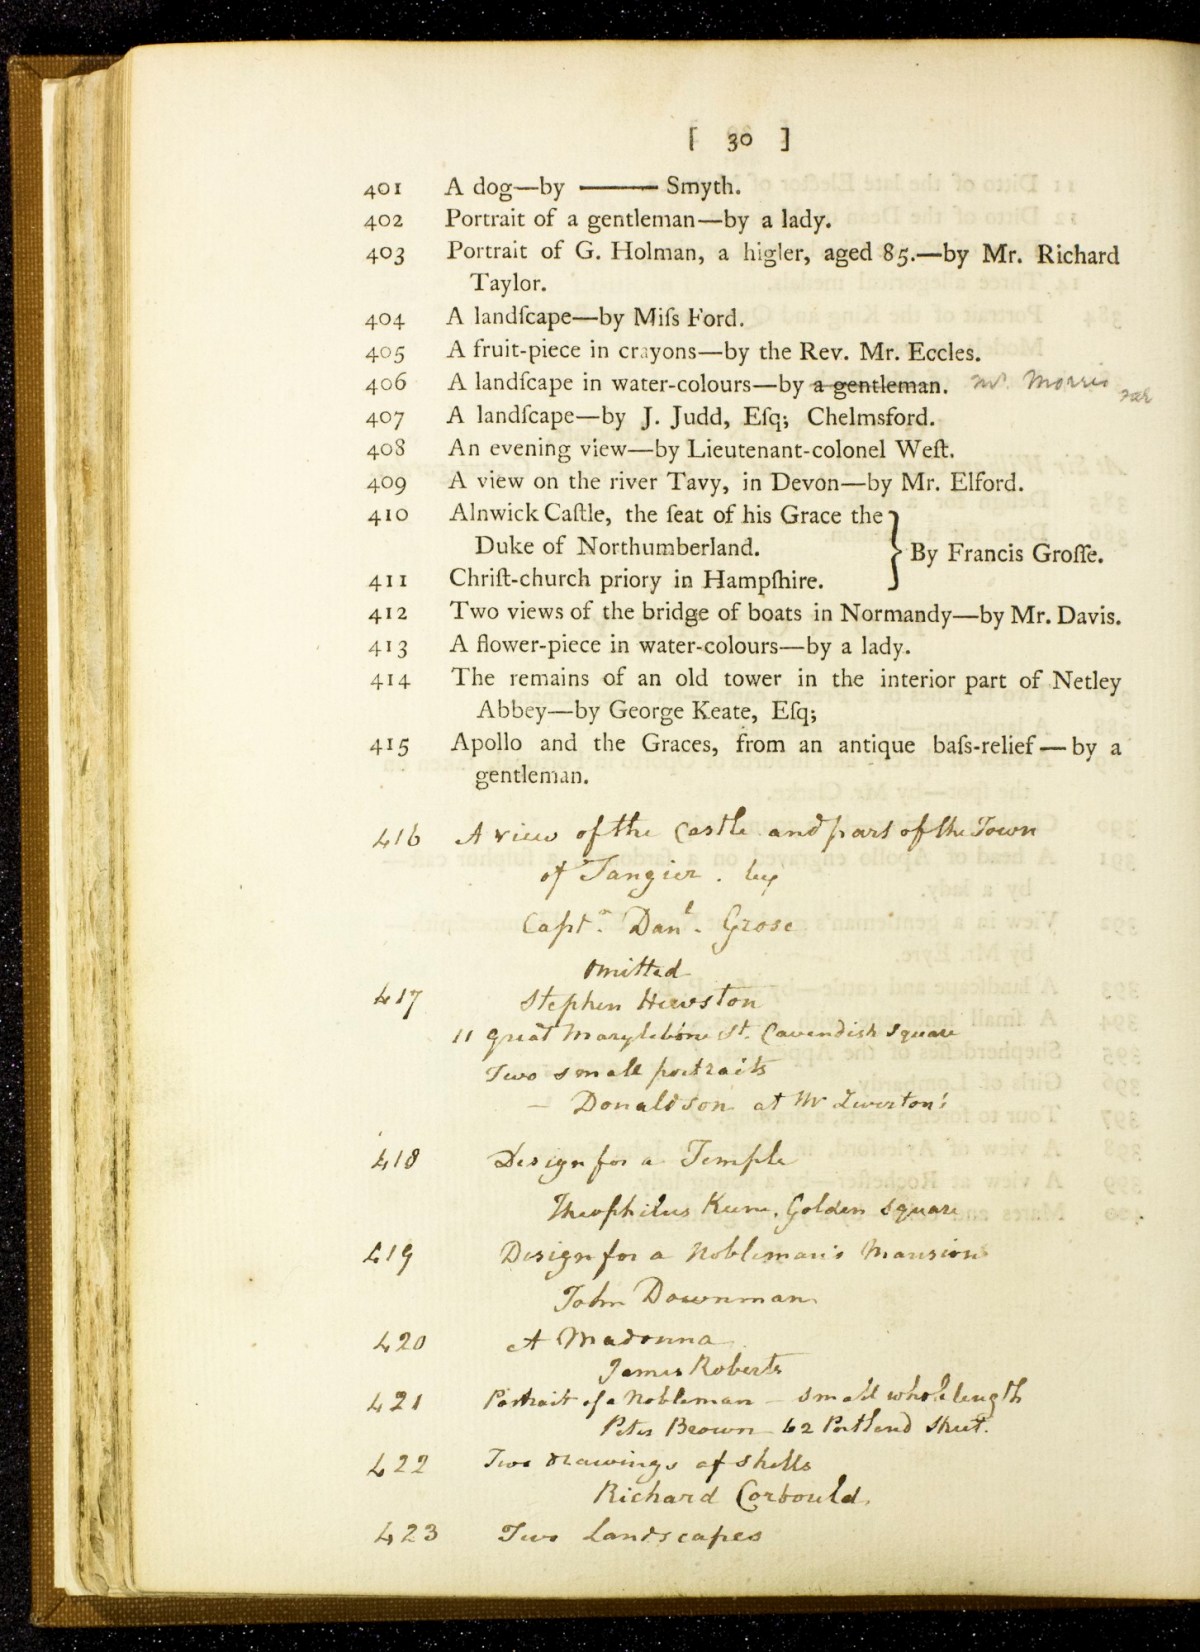 [ 30 ]
401 A dog—by ——— Smyth.
402 Portrait of a gentleman—by a lady.
403 Portrait of G. Holman, a higler, aged 85.—by Mr. Richard
Taylor.
404 A landſcape—by Miſs Ford.
405 A fruit-piece in crayons—by the Rev. Mr. Eccles.
406 A landſcape in water-colours—by a gentleman. Mr. Morris
407 A landſcape—by J. Judd, Eſq; Chelmsford.
408 An evening view—by Lieutenant-colonel Weſt.
409 A view on the river Tavy, in Devon—by Mr. Elford.
410 Alnwick Caſtle, the ſeat of his Grace the
Duke of Northumberland.
} By Francis Groſſe.
411 Chriſt-church priory in Hampſhire.
412 Two views of the bridge of boats in Normandy—by Mr. Davis.
413 A flower-piece in water-colours—by a lady.
414 The remains of an old tower in the interior part of Netley
Abbey—by George Keate, Eſq;
415 Apollo and the Graces, from an antique baſs-relief—by a
gentleman.
416 A view of the Castle and part of the Town
of Tangier. by
Captn. Danl. Grose
omitted
417 Stephen Hewston
11 Great Marylebone St. Cavendish Square
Two small portraits
– Donaldson at Mr
418 Design for a Temple
Theophilus Keene, Golden Square
419 Design for a Nobleman's Mansion
John Downman
420 A Madonna
James Roberts
421 Portrait of a Nobleman – small whole length
Peter Brown 62 Portland Street.
422 Two drawings of shells
Richard Corbould.
423 Two Landscapes